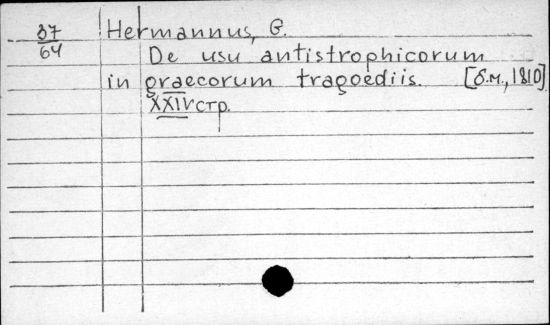 37/64
Hermannus, G.
De usu antistrophicorum
in graecorum tragoediis. [б.м., 1810]
XXIV стр.